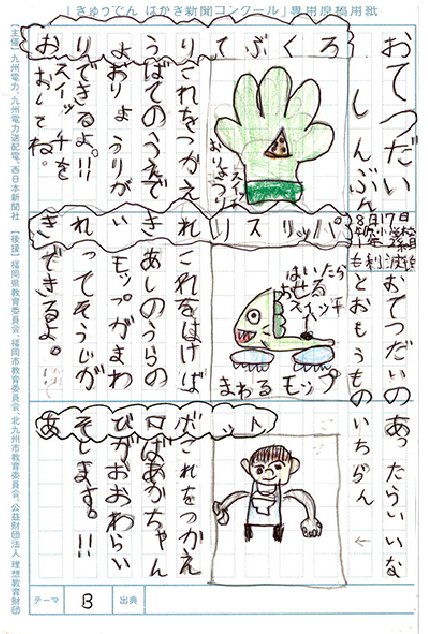 「きゅうでん はがき新聞コンクール」専用原稿用紙
おてつだい
しんぶん
8月17日
おてつだいの あったらいいな
とおもうものいちらん
おりょうりてぶくろ
スイッチ
おりょうり
これをつかえ
ばてのうえで
おりょうりが
できるよ。!!
スイッチを
おしてね。
きれいきれいスリッパ
はいたら
おせる
スイッチ
まわるモップ
これをはけば
あしのうらの
モップがまわ
ってそうじが
できるよ。
あそびロボット
これをつかえ
ばあかちゃん
がおおわらい
します。!!
テーマ B 出典
【主催】九州電力、九州電力送配電、西日本新聞社 【後援】福岡県教育委員会、福岡市教育委員会、北九州市教育委員会、公益財団法人 理想教育財団